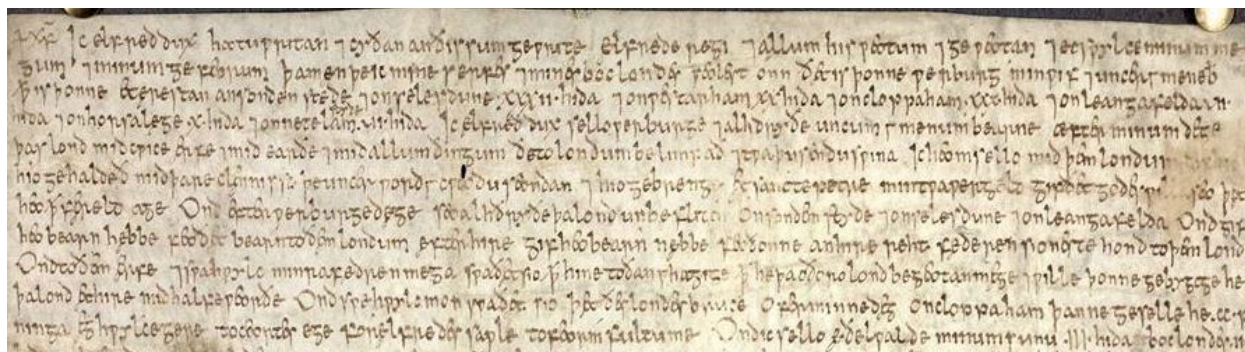 ✝ XPS Ic elfred dux hatu ƿritan ⁊ cyðan an ðissum geƿrite elfrede regi ⁊ allum his ƿeotum ⁊ geƿeotan ⁊ ec sƿylce minum me
gum ⁊ minum gefeorum þa men þe ic mines erfes ⁊ mines boclondes seolest onn ðet is þonne ƿerburg min ƿif ⁊ uncer gemene
þ is þonne et erestan an sondenstede ⁊ on selesdune xxxii hida ⁊ on ƿestarham xx hida ⁊ on cloppaham xxx hida ⁊ on leangafelda vi
hida ⁊ on horsalege x hida ⁊ on netelam styde vi hida Ic elfred dux sello ƿerburge ⁊ alhdryðe uncum gemenum bearne efter minum dege
þas lond mid cƿice erfe ⁊ mid earðe ⁊ mid allum ðingum ðe to londum belimpað ⁊ tƿa þusendu sƿina Ic heom sello mid þem londum
hio gehaldeð mid þare clennisse þe uncer ƿordgecƿeodu seondan ⁊ hio gebrenge et sancte petre min tƿa ƿergeld gif ðet godes seo þet
heo þ fereld age Ond efter ƿerburge dege seo alhdryðe þa lond unbefliten on sondemstyde ⁊ on selesdune ⁊ on leangafelda Ond gif
heo bearn hebbe feo ðet bearn to ðem londum efter hire gif heo bearn nebbe feo ðonne an hire rehtfederen sio neste hond to þem lond
Ond to ðem erfe ⁊ sƿa hƿylc minra fedrenmega sƿa ðet sio þ hine to ðan gehagige þ he þa oðoro lond begeotan mege ⁊ ƿille þonne gebygge he
þa lond et hire mid halfe ƿeorðe Ond sƿe hƿylc mon sƿa ðet sio þet ðes londes bruce ofer minne deg on cloppaham þanne geselle he cc p
ninga eghƿylce gere to ceortesege for elfredes saƿle to feormfultume Ond ic sello eðelƿalde minum sunu iii hida boclondes